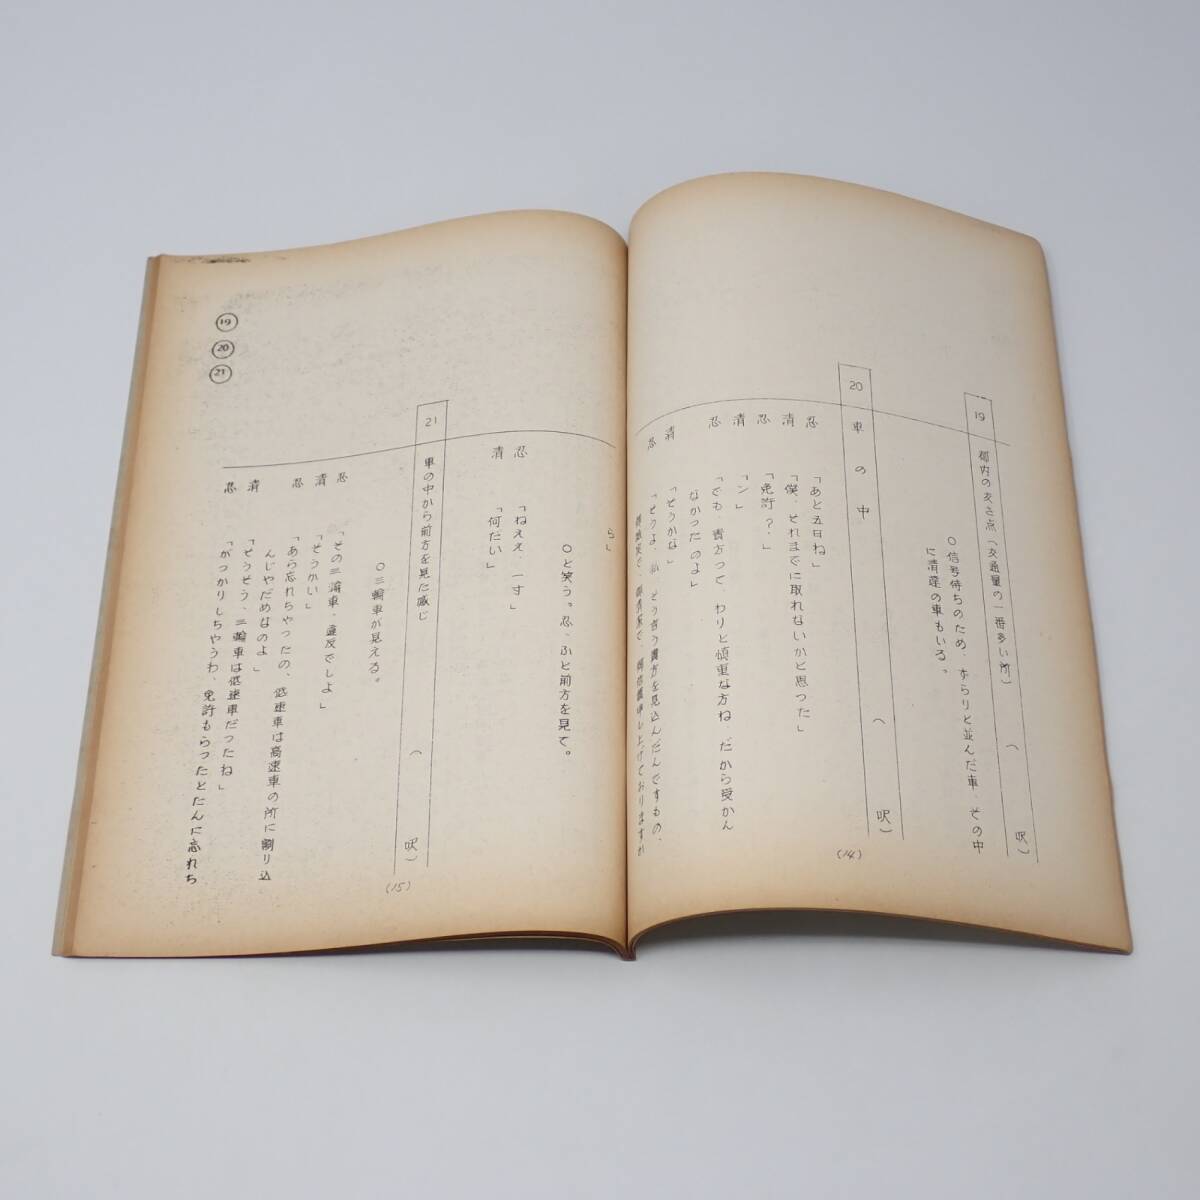 19 都内の交さ点(交通量の一番多い所) ( 呎)
○信号待ちのため、ずらりと並んだ車、その中
に清達の車もいる。
20 車の中 ( 呎)
忍 「あと五日ね」
清 「僕、それまでに取れないかと思った」
忍 「免許?」
清 「ン」
忍 「でも 貴方って、わりと慎重な方ね だから受かん
なかったのよ」
清 「そうかな」
忍 「そうよ、私、そう言う貴方を見込んだんですもの、
御信義申し上げておりますか
(14)
ら」
○と笑う。忍、ふと前方を見て。
忍 「ねえぇ、一寸」
清 「何だい」
21 車の中から前方を見た感じ ( 呎)
○三輪車が見える。
忍 「その三輪車、違反でしよ」
清 「そうかい」
忍 「あら忘れちゃつたの、低速車は高速車の所に割り込
んじやだめなのよ」
清 「そうそう、三輪車は低速車だったね」
忍 「がっかりしちやうわ、免許もらつたとたんに忘れち
(15)
19
20
21